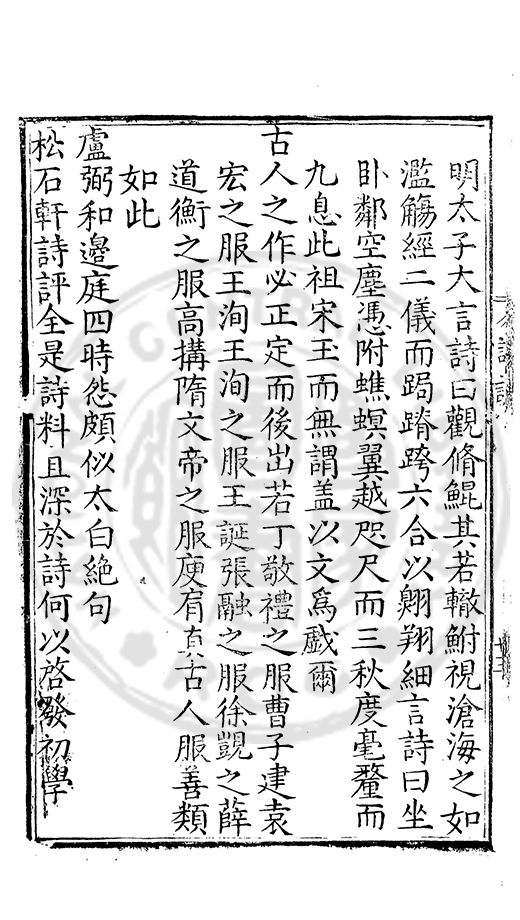 明太子大言詩曰觀脩鯤其若轍鮒視滄海之如
濫觴經二儀而跼蹐跨六合以翺翔細言詩曰坐
卧鄰空塵憑附蟭螟翼越咫尺而三秋度毫釐而
九息此祖宋玉而無謂盖以文爲戱爾
古人之作必正定而後出若丁敬禮之服曹子建袁
宏之服王洵王洵之服王誕張融之服徐覬之薛
道衡之服高搆隋文帝之服庾肓真古人服善類
如此
盧弼和邊庭四時怨頗似太白絶句
松石軒詩評全是詩料且深於詩何以啓發初學